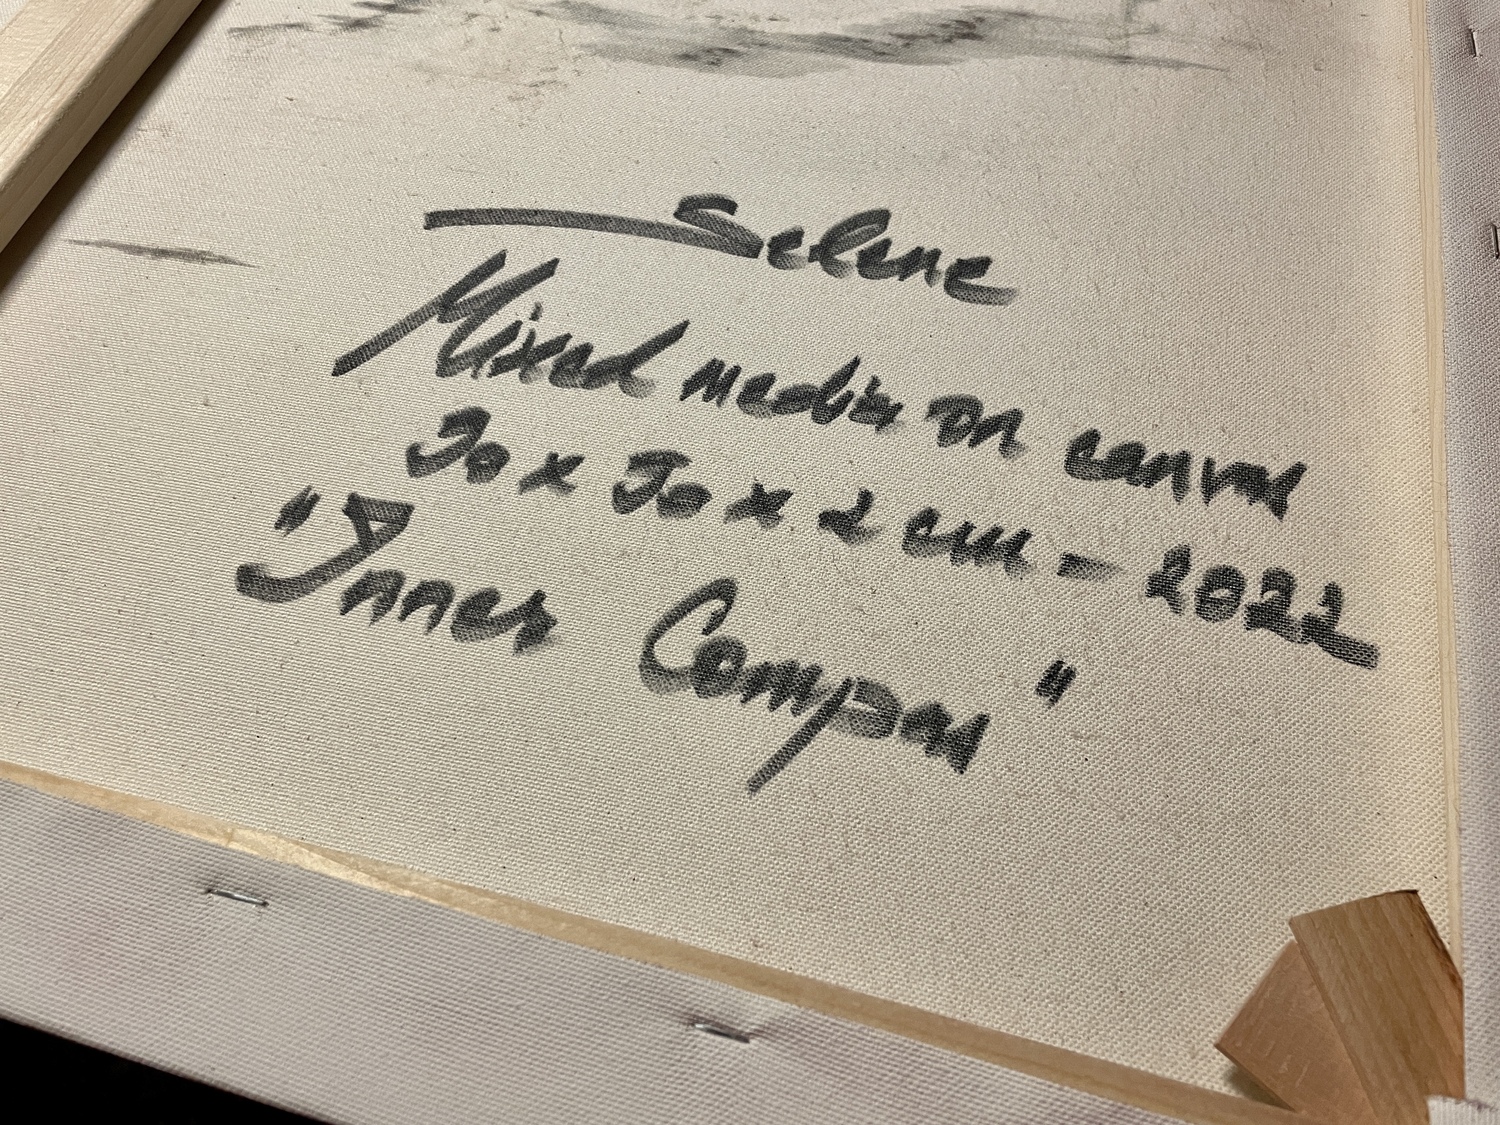 Selene
Mixed media on canvas
70 x 70 x 2 cm - 2022
"Inner Compass"